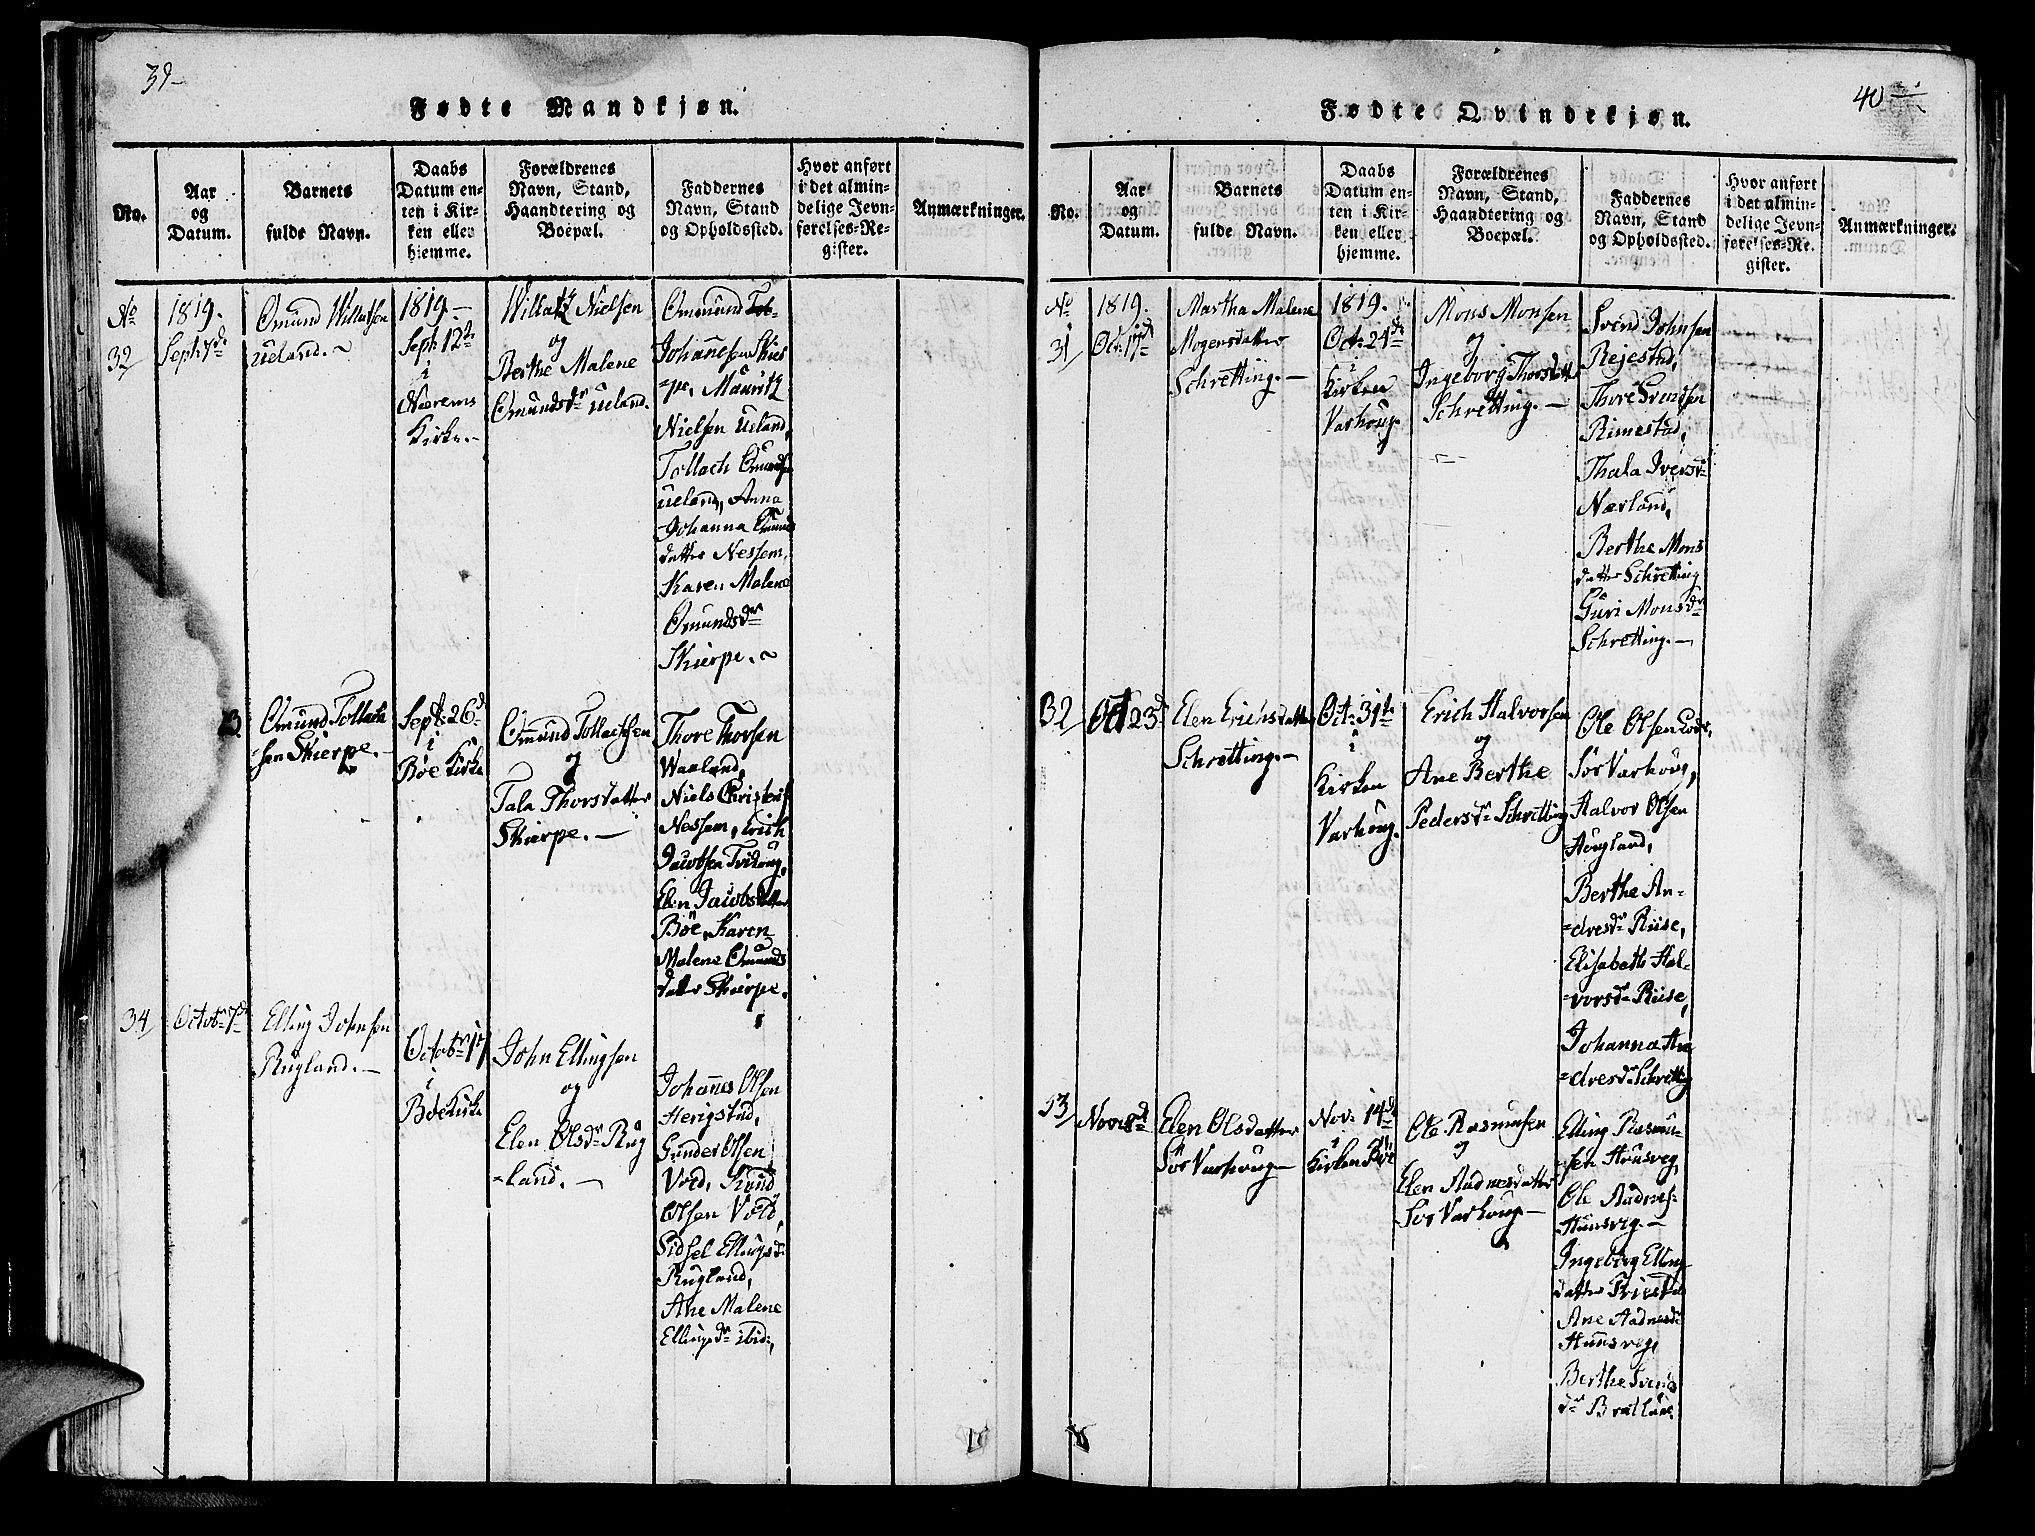 39
Fødte Mandkjøn.
No.
Aar
og
Datum.
Barnets
fulde Navn.
Daabs
Datum en-
ten i Kir-
ken eller
hjemme.
Forældrenes
Navn, Stand,
Haandtering og
Boepæl.
Faddernes
Navn, Stand
og Opholdssted.
Hvor anført
i det almin-
delige Jevn-
førelses-Re-
gister.
Anmærkninger.
No
32
1819.
Sept 7de
Omund Willatsen
Ueland.
1819.
Sept 12te
i
Nærems
Kirke.
Nielsen
og
Berthe Malene
Omundsdr Ueland.
Ommund
Johannesen Skier
=pe, Mauritz
Nielsen Ueland,
Tollach Omundsen
Ueland, Anna
Johanna Omunds
datter Nessem,
Karen Malene
Omundsdr
Skierpe.
Omund Tollach
sen Skierpe.
Sept: 26d
i
Bøe Kirke
Omund Tollachsen
og
Tala Thorsdatter
Skierpe.
Thore Thorsen
Waaland,
Niels Christens
Nessem, Erich
Jacobsen
Elen Jacobsdatter
Bøe, Karen
Malene Omunds
datter Skierpe.
34
Octobr 7de
Elling Johnsen
Rugland.
Octobr 17
i
Bøe Kirke
John Ellingsen
og
Elen Olsdr Rug
=land.
Johannes Olsen
Herigstad,
Gunder Olsen
Vold, Knud
Olsen Vold,
Sidsel Ellingsdr
Rugland,
Ane Malene
Ellingsdr ibid:
40
Fødte Qvindekjøn.
No.
Aar
og
Datum.
Barnets
fulde Navn.
Daabs
Datum en-
ten i Kir-
ken eller
hjemme.
Forældrenes
Navn, Stand,
Haandtering og
Boepæl.
Faddernes
Navn, Stand
og Opholdssted.
Hvor anført
i det almin-
delige Jevn-
førelses-Re-
gister.
Anmærkninger.
No
31
1819.
Oct: 17de
Martha Malene
Mogensdatter
Schretting.
1819.
Oct: 24de
i
Kirken
Varhoug.
Mons Monsen
og
Ingeborg Thorsdatter
Schretting.
Svend Johnsen
Rejestad,
Thore Svendsen
Rimestad,
Thala Iversdr
Nærland,
Berthe Mons
datter Schretting
Guri Monsdr
Schretting.
32
Oct 23d
Elen Erichsdatter
Schretting.
Oct: 31te
i
Kirken
Varhoug.
Erich Halvorsen
og
Ane Berthe
Pedersdr Schretting
Ole Olsen
Sør Varhoug,
Halvor Olsen
Hougland,
Berthe An-
=dresdr Riise,
Elisabeth Hal-
=vorsdr Riise,
Johanna An
=dresdr Schretting
33
Novr 8de
Elen Olsdatter
Sør Varhoug
Nov: 14de
i
Kirken Bøe
Ole Rasmusen
og
Elen Aadnesdatter
Sør Varhoug
Elling Rasmu-
sen Hunsveg,
Ole Aadnes-
Hunsveg.
Ingeborg Elling
datter
Ane Aadnesdr
Hunsveg,
Berthe Svends
dr Bratland.